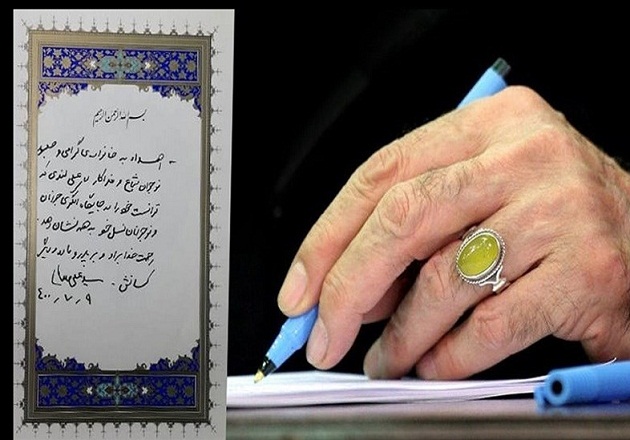 بسم الله الرحمن الرحیم
- اهداء به خانواده‌ی گرامی و صبور
نوجوان شجاع و فداکار علی لندی که
توانست خود را به جایگاه الگوی جوانان
و نوجوانان نسل خود به همه نشان دهد.
رحمت خدا بر او و بر پدر و مادر و دیگر
کسانش. سید علی
۴۰۰/۷/۹